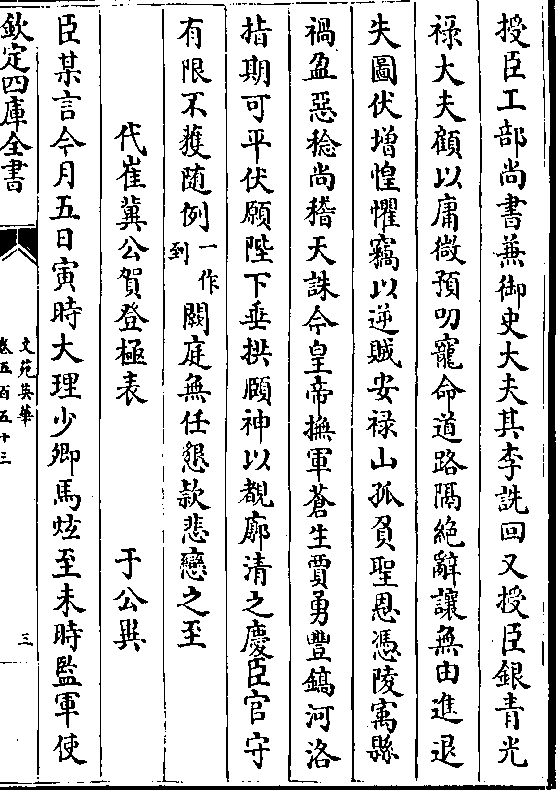 授臣工部尚書兼御史大夫其李詵回又授臣銀青光
祿大夫顧以庸微預叨寵命道路隔絶辭讓無由進退
失圖伏增惶懼竊以逆賊安禄山孤負聖恩憑陵寓縣
禍盈惡稔尚稽天誅今皇帝撫軍蒼生賈勇豐鎬河洛
指期可平伏願陛下垂拱頤神以覩廓清之慶臣官守
有限不獲随例一作到闕庭無任懇款悲戀之至
代崔冀公賀登極表 于公異
臣某言今月五日寅時大理少卿馬炫至未時監軍使
欽定四庫全書 文苑英華 卷五百五十三 三